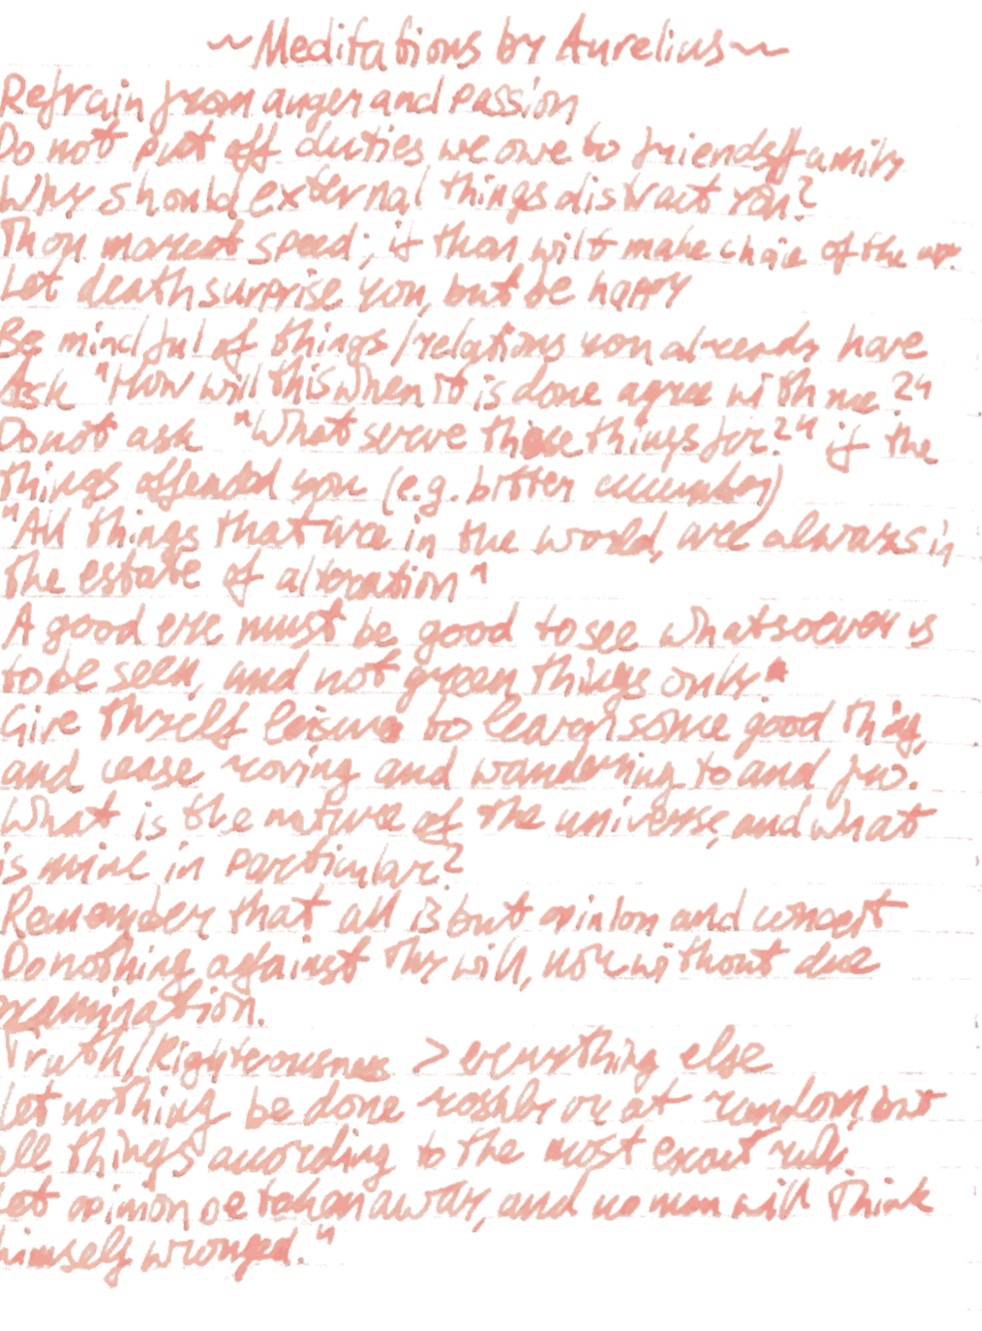 ~Meditations by Aurelius~
Refrain from anger and passion
Do not put off duties we owe to friends/family
Why should external things distract you?
Thou mayest speed; if thou wilt make choice of the
Let death surprise you, but be happy
Be mindful of things/relations you already have
Ask "How will this when it is done agree with me?"
Do not ask "What serve these things for?" if the
things offended you (e.g. bitter cucumber)
"All things that are in the world, are always in
the estate of alteration"
A good eye must be good to see whatsoever is
to be seen, and not green things only"
Give thyself leisure to learn some good thing,
and cease roving and wandering to and fro.
What is the nature of the universe, and what
is mine in particular?
Remember that all is but opinion and conceit
Do nothing against thy will, nor without due
examination.
Truth/Righteousness > everything else
Let nothing be done rashly or at random, but
all things according to the most exact rule.
Let opinion be taken away, and no man will think
himself wronged."